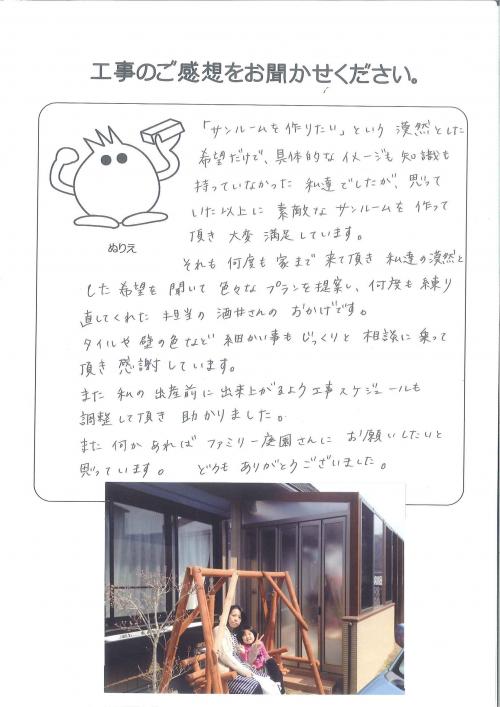 工事のご感想をお聞かせください。
「サンルームを作りたい」という 漠然とした
希望だけで、具体的なイメージも 知識も
持っていなかった 私達でしたが、思って
いた以上に 素敵な サンルームを 作って
頂き 大変 満足しています。
ぬりえ
それも 何度も 家まで 来て頂き 私達の漠然と
した 希望を 聞いて 色々な プランを 提案し、何度も 練り
直してくれた 担当の 酒井さんの おかげです。
タイルや 壁の色など 細かい事も じっくりと 相談に 乗って
頂き 感謝しています。
また 私の 出産前に 出来上がるよう 工事スケジュールも
調整して頂き 助かりました。
また 何か あれば ファミリー庭園さんに お願いしたいと
思っています。 どうも ありがとうございました。